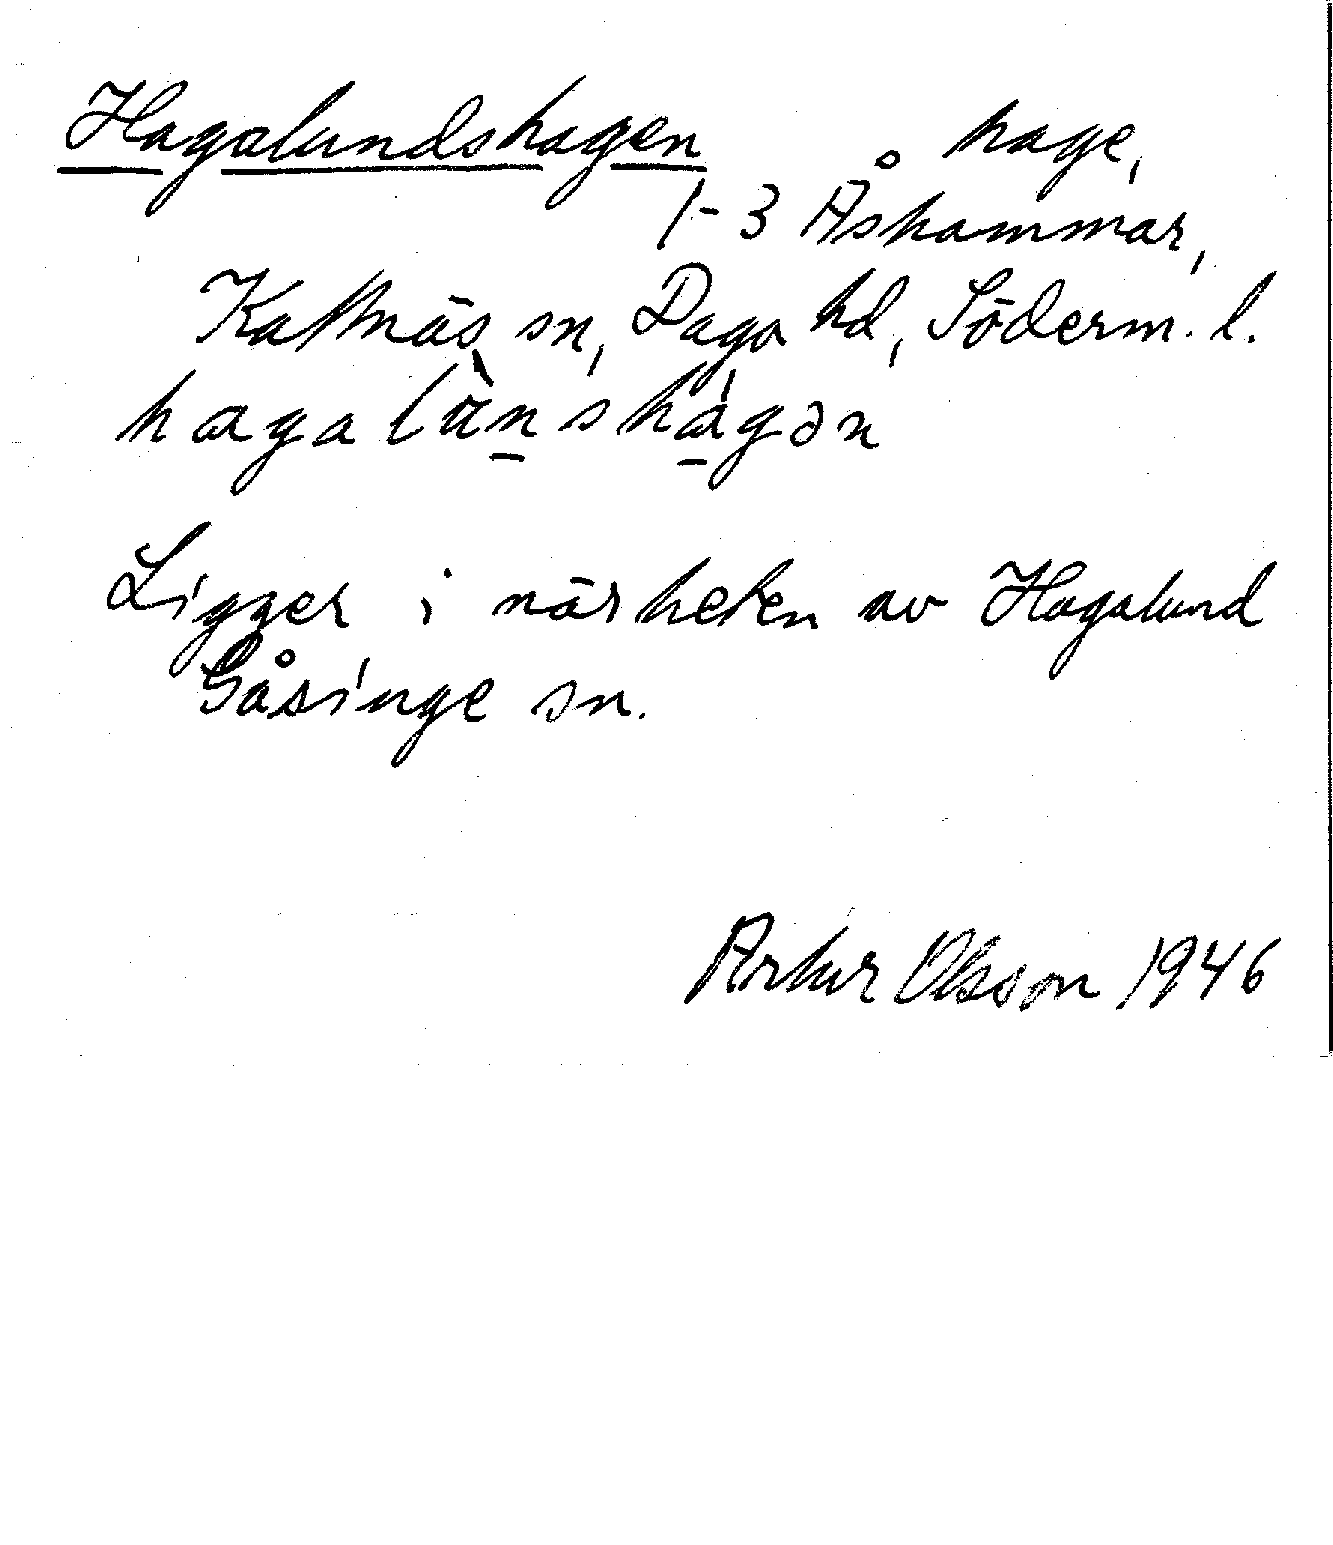 Hagalundshagen hage,
1-3 Åshammar,
Kattnäs sn, Daga hd, Söderm. l.
hagalùnshágən
Ligger i närheten av Hagalund
Gåsinge sn.
Artur Olsson 1946